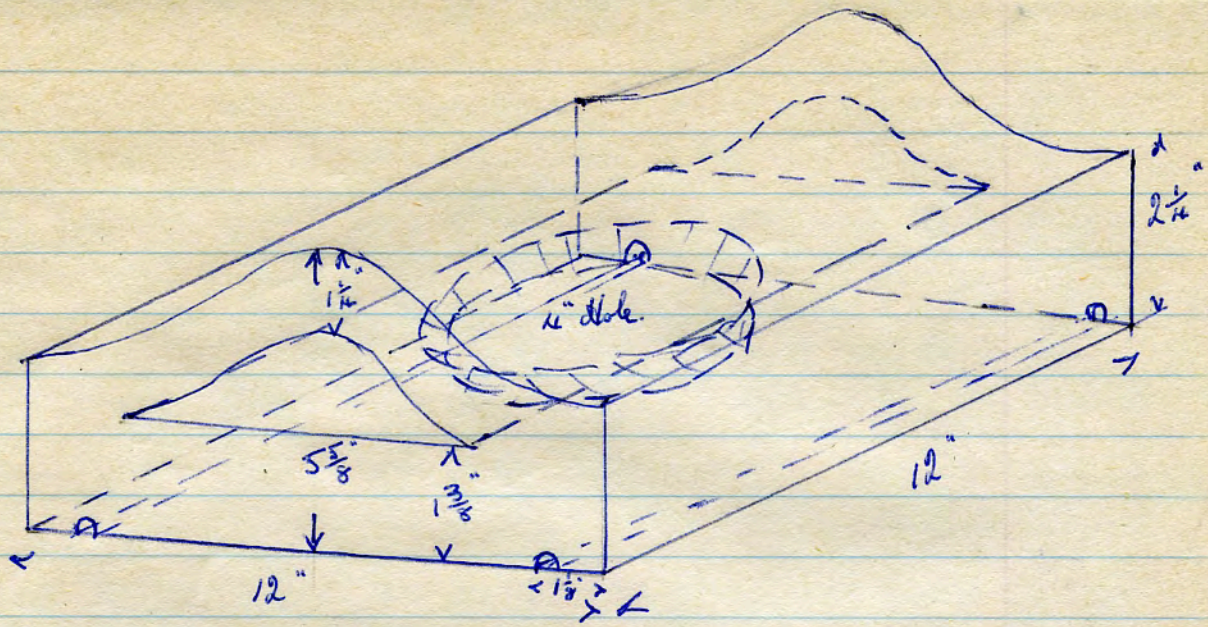 2 1/4"
1 1/4"
4" Hole.
5 5/8"
1 3/8"
12"
12"
1 1/8"